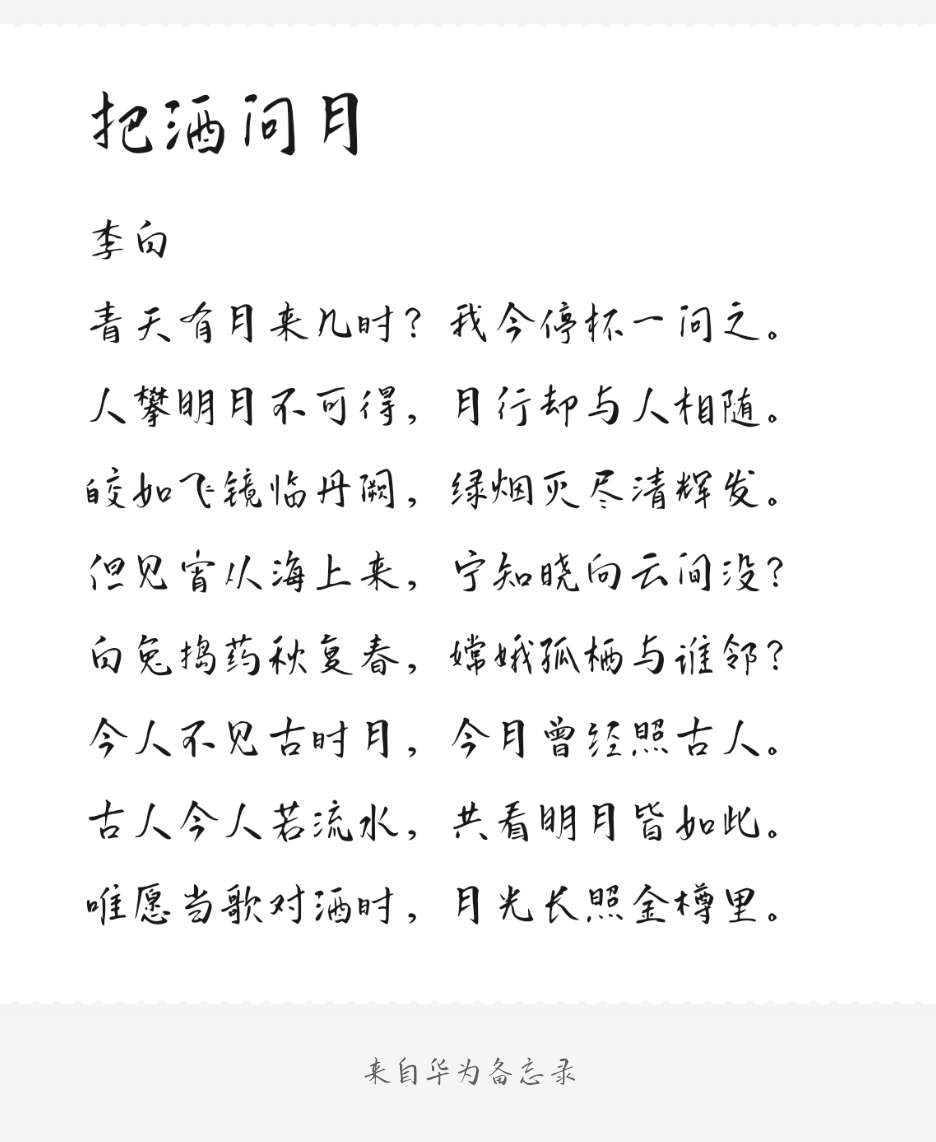 把酒问月
李白
青天有月来几时？我今停杯一问之。
人攀明月不可得，月行却与人相随。
皎如飞镜临丹阙，绿烟灭尽清辉发。
但见宵从海上来，宁知晓向云间没？
白兔捣药秋复春，嫦娥孤栖与谁邻？
今人不见古时月，今月曾经照古人。
古人今人若流水，共看明月皆如此。
唯愿当歌对酒时，月光长照金樽里。
来自华为备忘录